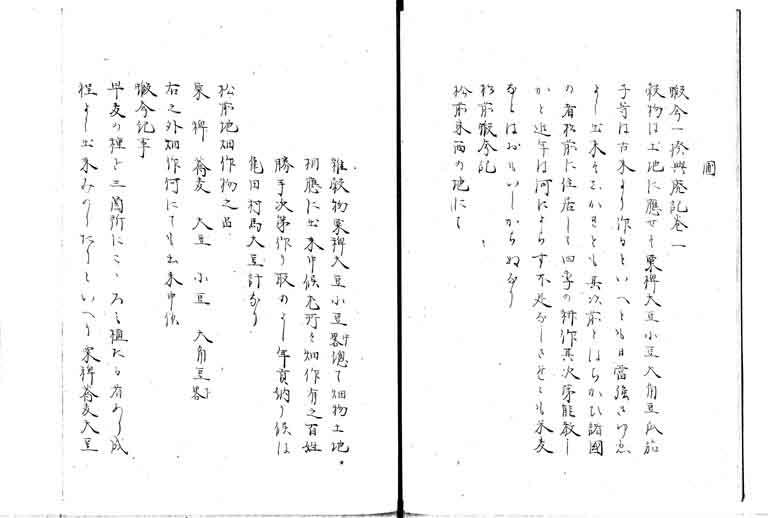 圃
蝦夷一揆興廃記巻一
穀物は土地に應せす粟稗大豆小豆大角豆瓜茄
子等は古来より作るといへとも日當強き
よし出来そ
の者松前に住居して四季の耕作其次第能教し
かと近年は何によらす不足なしさせとも米麦
なとはおもいしからぬなり
松前蝦夷記
松前東西の地にて
雑穀物粟稗大豆小豆惣て畑物土地
相應に出来申候尤所々畑作有之百姓
勝手次第作り取のよし年貢納り候は
亀田村馬大豆計なり
松前地畑作物之品
粟 稗 蕎麦 大豆 小豆 大角豆
右之外畑作何にても出来申候
蝦夷記事
早麦の種を三箇所にこゝろミ植たる者あり成
程よし出来みのりたりといへり粟稗蕎麦大豆